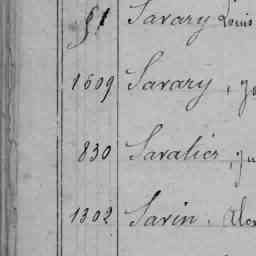 81 Savary Louis
1609 Savary,
830 Savatier,
1302 Savin. Alex